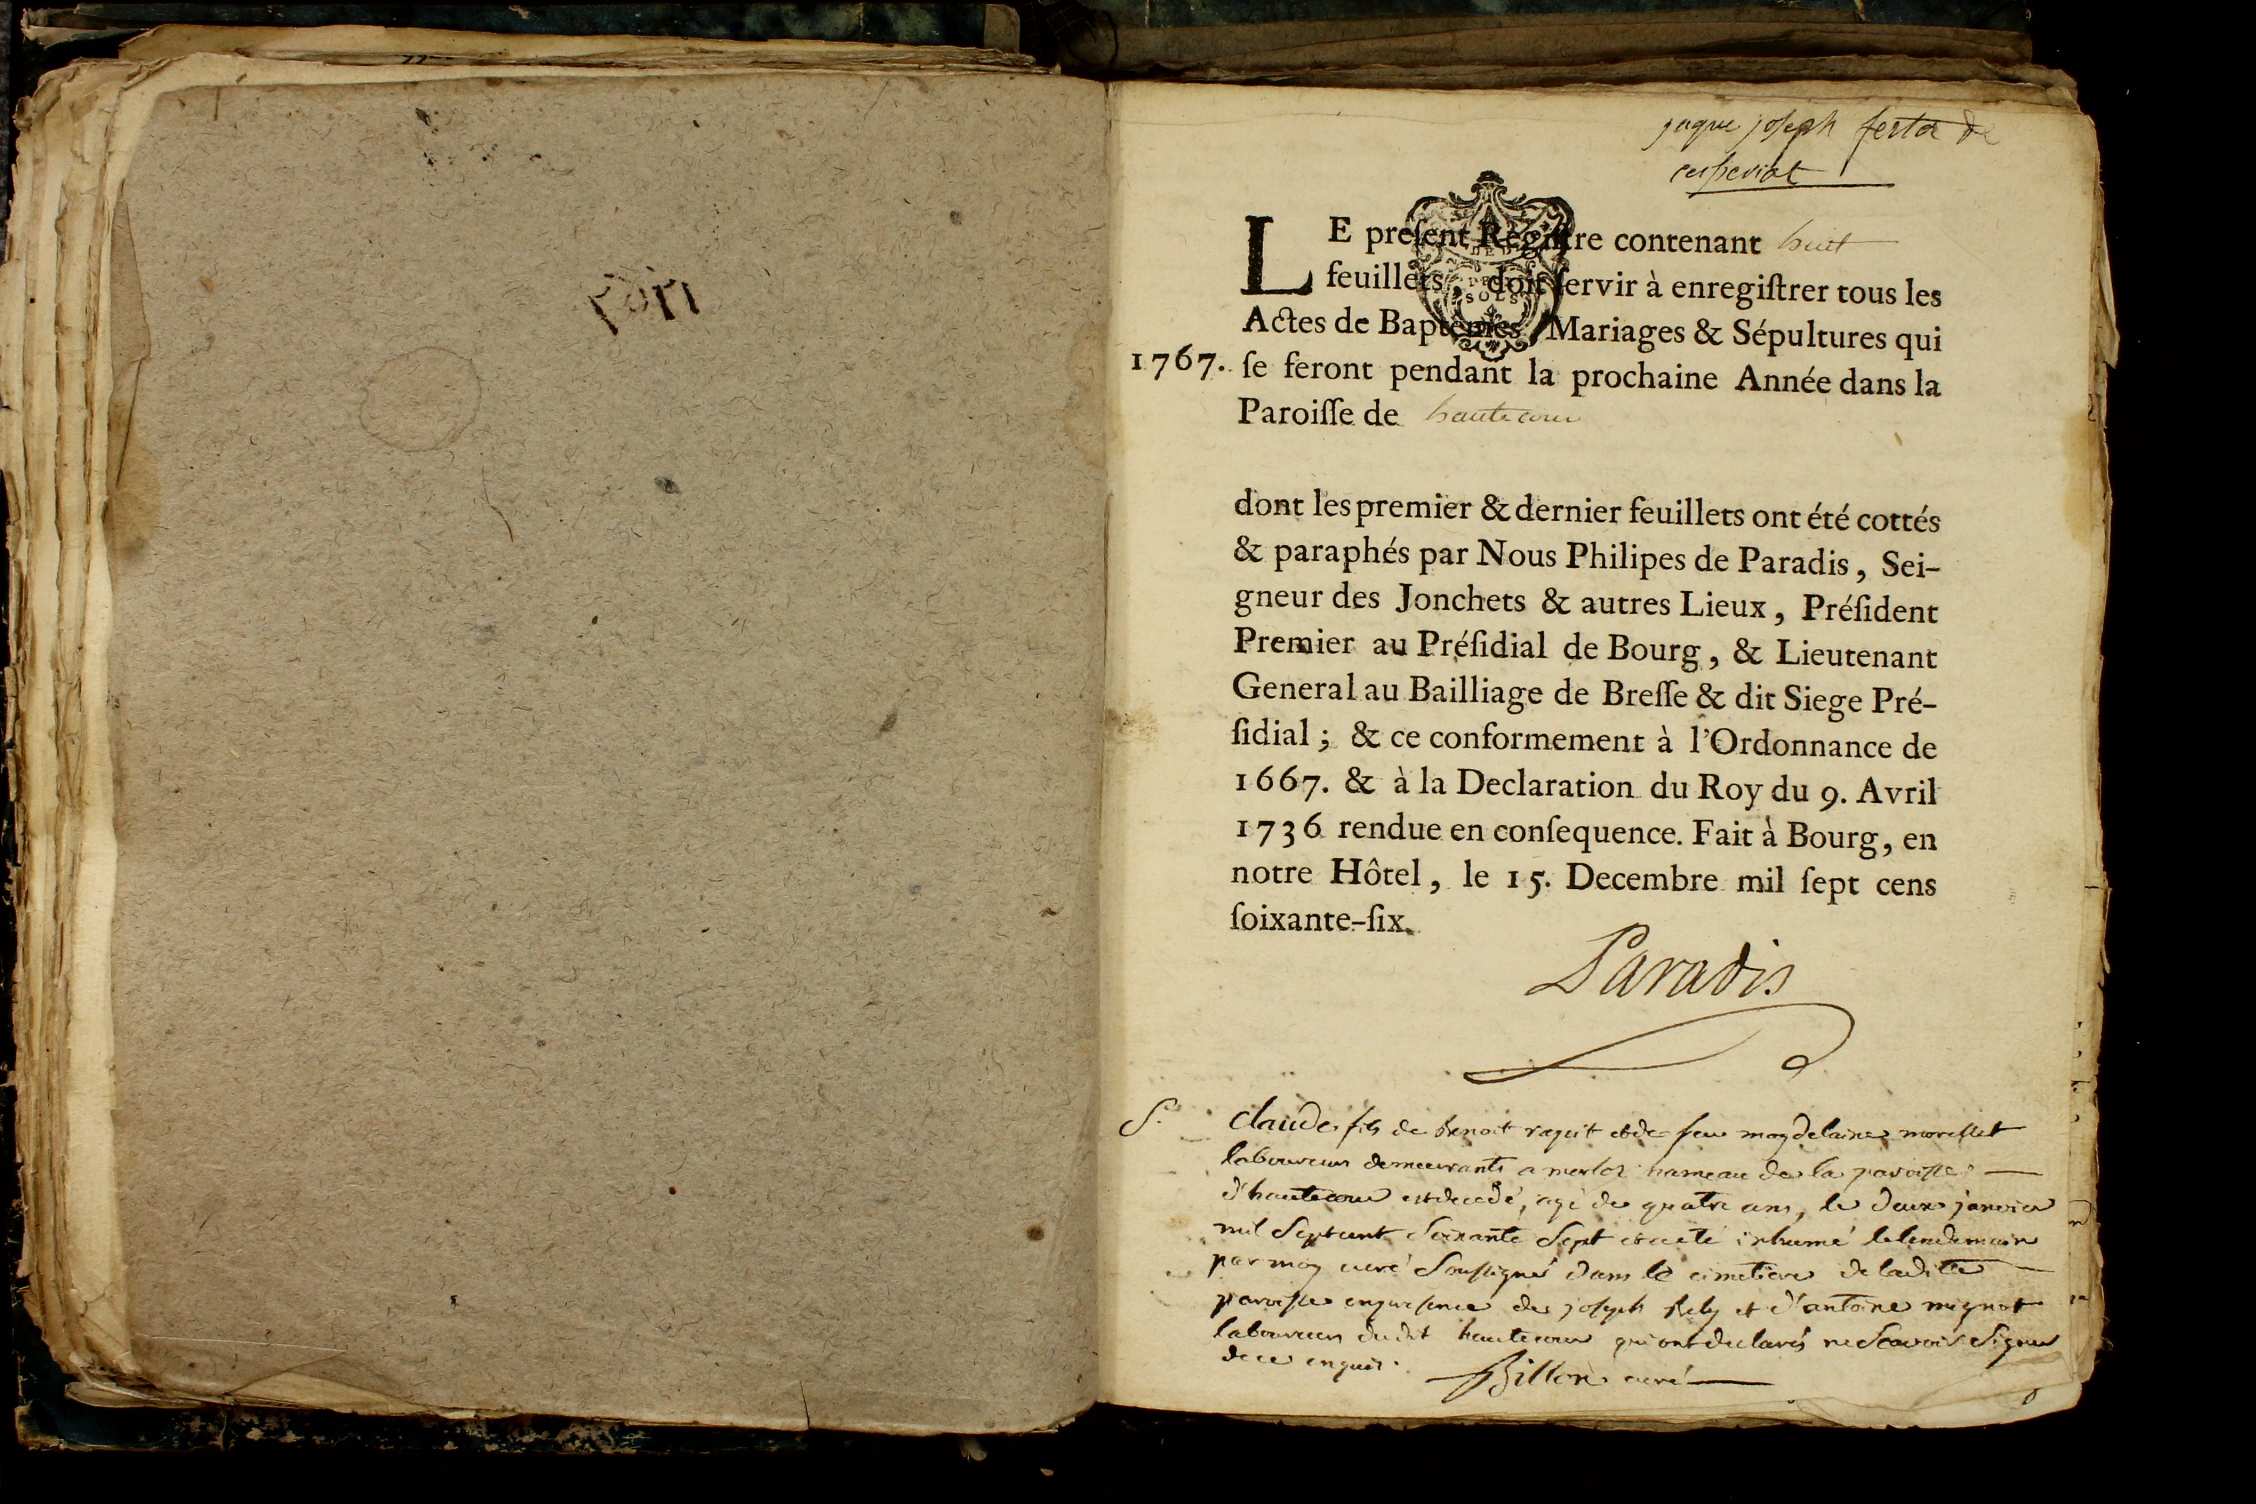 1767
jaque joseph
LE preſent Regiſtre contenant huit
feuillets, doit ſervir à enregiſtrer tous les
Actes de Baptêmes, Mariages & Sépultures qui
1767. ſe feront pendant la prochaine Année dans la
Paroiſſe de hautecour
dont les premier & dernier feuillets ont été cottés
& paraphés par Nous Philipes de Paradis, Sei-
gneur des Jonchets & autres Lieux, Préſident
Premier au Préſidial de Bourg, & Lieutenant
General au Bailliage de Breſſe & dit Siege Pré-
ſidial; & ce conformement à l'Ordonnance de
1667. & à la Declaration du Roy du 9. Avril
1736 rendue en conſequence. Fait à Bourg, en
notre Hôtel, le 15. Decembre mil ſept cens
ſoixante-ſix.
Paradis
S. Claude fils de Benoit et de feu magdelaine morellet
laboureur demeurants a hameau de la paroisse
d'hautecour est decedé, agé de quatre ans, le deux janvier
mil sept cent soixante sept et a eté inhumé le lendemain
par moy curé soussigné dans le cimetiere de laditte
paroisse en presence de joseph et d'antoine mignot
laboureurs dudit hautecour qui ont declarés ne scavoir signer
de ce enquis.
Billon curé